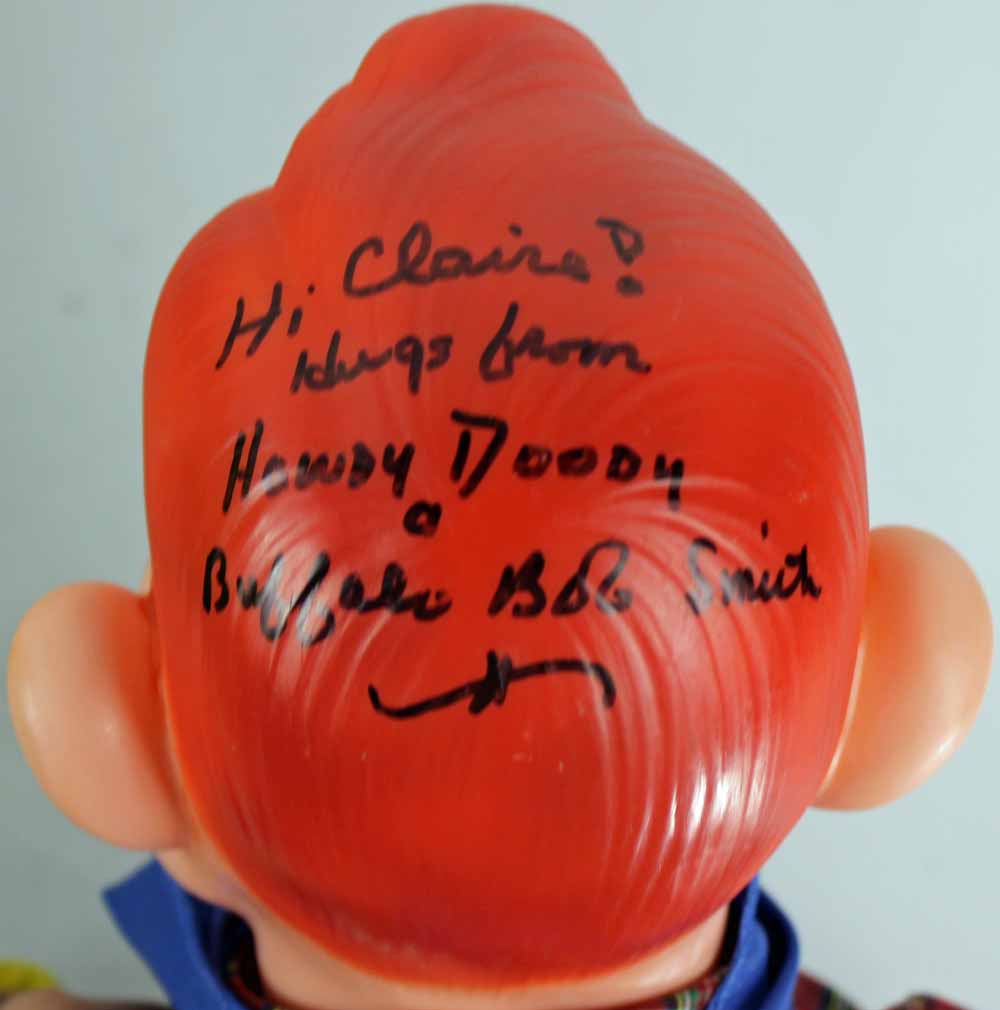 Hi Claire!
Hugs from
Howdy Doody
&
Buffalo Bob Smith